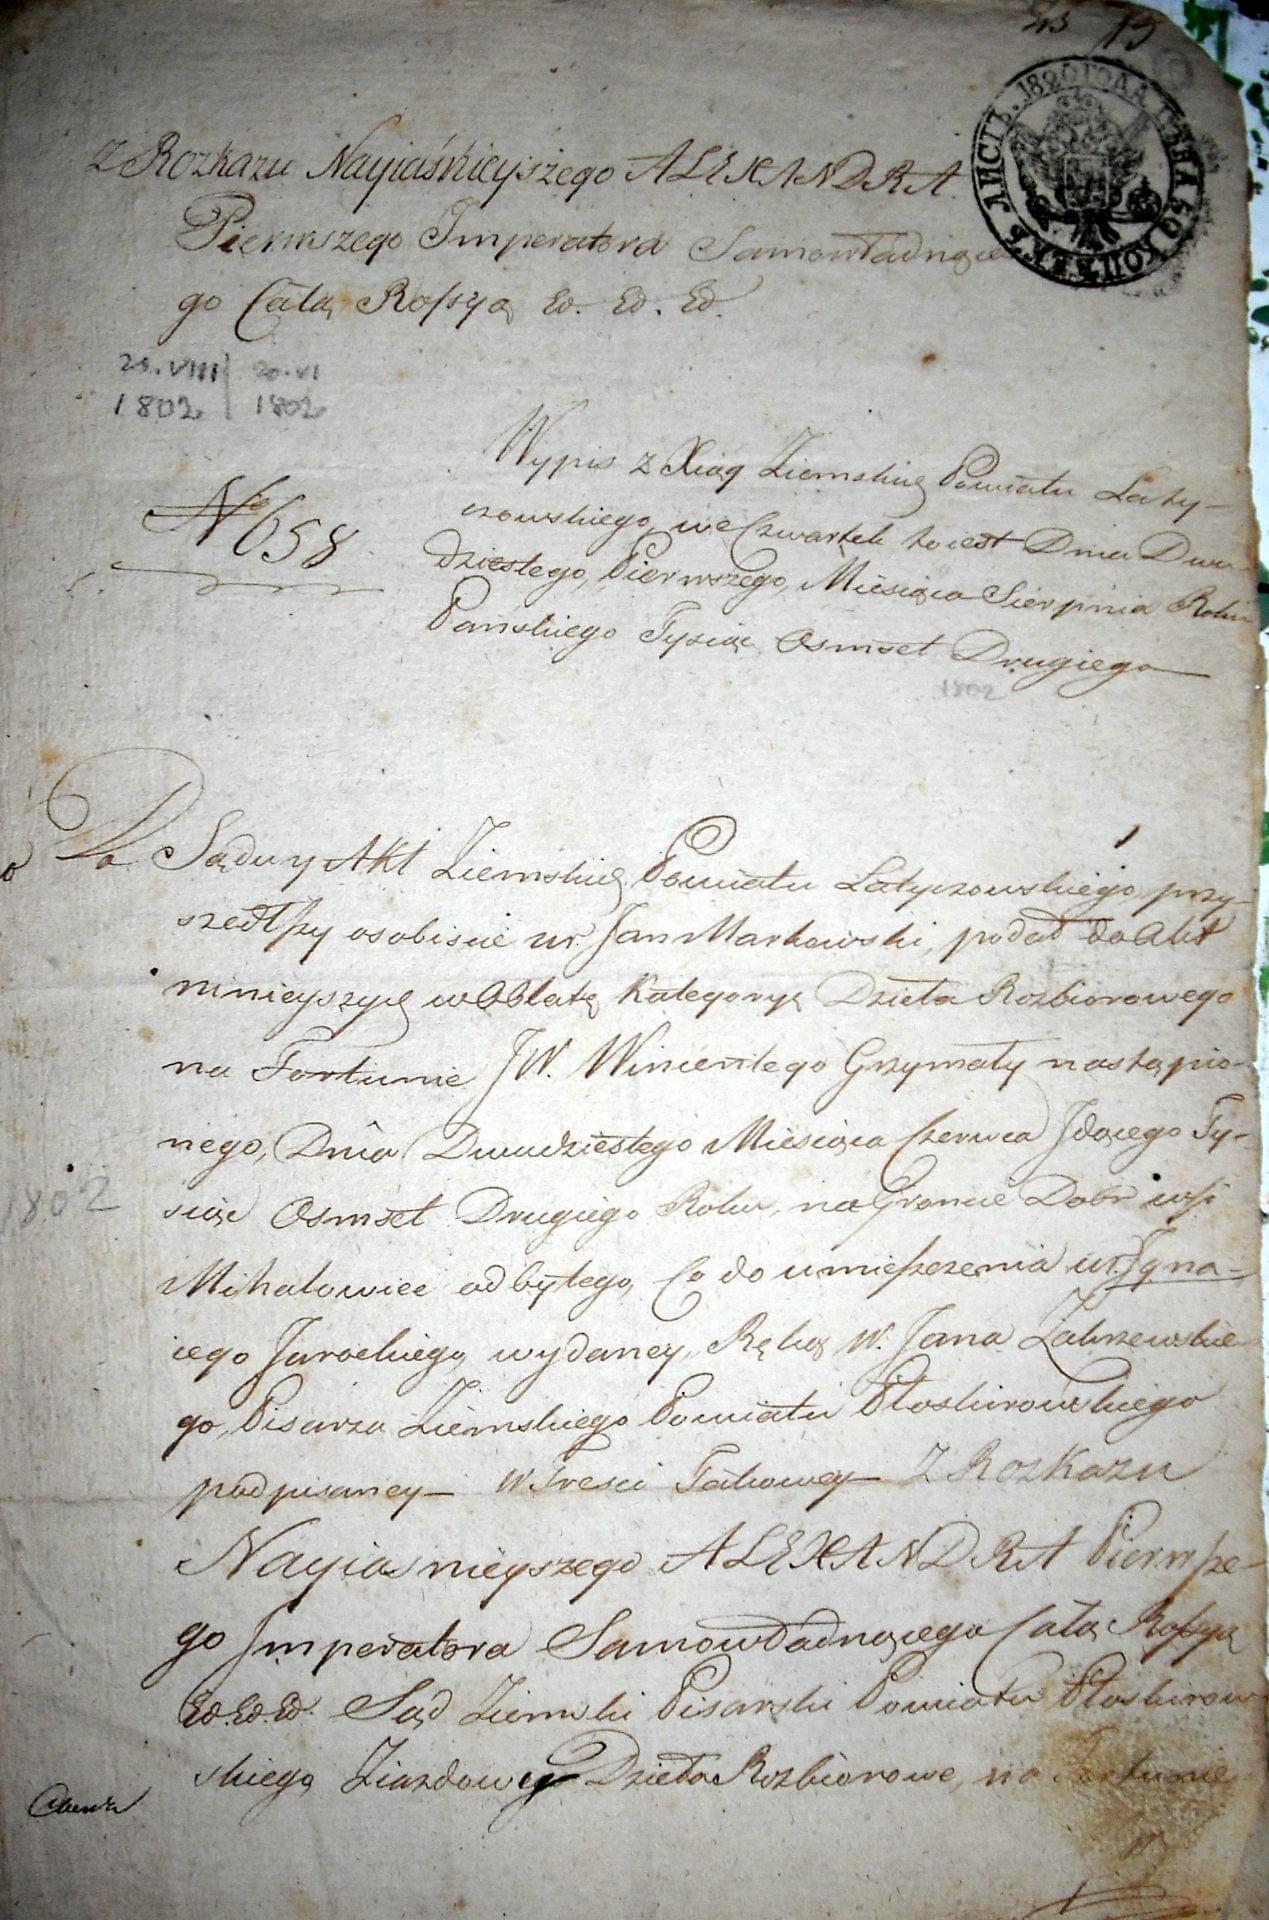 23 19
ЛИСТЪ. 1820 ГОДА ЦѢНА 50 КОПѢЕКЪ
Z Rozkazu Nayiaśnieyszego ALEXANDRA
Pierwszego Imperatora Samowładnące
go Całą Rossyą Ed. Ed. Ed.
21.VIII | 20.VI
1802 | 1802
Wypis z Xiąg Ziemskię Powiatu Laty-
czowskiego, we Czwartek to iest Dnia Dwu
dziestego, Pierwszego, Miesiąca Sierpnia Roku
Pańskiego Tysiąc Osmset Drugiego
1802
No 658
Do Sądu y Akt Ziemskię Powiatu Latyczowskiego przy-
szedłszy osobiscie ur. Jan Markowski, podał do Akt
ninieyszyę w Oblatę Kategoryę Dzieła Rozbiorowego
na Fortunie JW. Wincentego Grzymały nastąpio-
nego, Dnia Dwudziestego Miesiąca Czerwca Idącego Ty-
siąc Osmset Drugiego Roku, na Groncie Dobr wsi
1802
Mihałowiec odbytego, Co do umieszczenia ur. Igna-
iego Jarockiego, wydaney, Ręką W. Jana Zakrzewskie-
go, Pisarza Ziemskiego Powiatu Płoskirowskiego
podpisaney- W Tresci Takowey- Z Rozkazu
Nayiasnieyszego ALEXANDRA Pierwsze-
go Imperatora Samowładnącego Całą Rossyą
Ed. Ed. Ed. Sąd Ziemski Pisarski Powiatu Płoskirow
skiego Ziazdowey Dzieło Rozbiorowe, na Fortunie